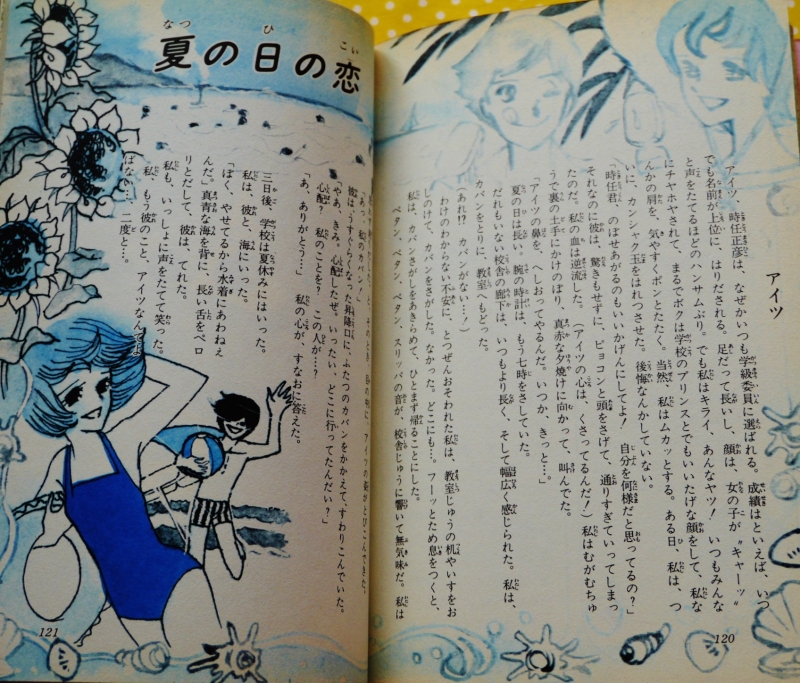 夏の日の恋
なつ ひ こい
アイツ
アイツ、時任正彦は、なぜかいつも学級委員に選ばれる。成績はといえば、いつ
でも名前が上位に、はりだされる。足だって長いし、顔は、女の子が〝キャーッ〟
と声をたてるほどのハンサムぶり。でも私はキライ、あんなヤツ！ いつもみんな
にチヤホヤされて、まるでボクは学校のプリンスとでもいいたげな顔をして、私な
んかの肩を、気やすくポンとたたく。当然、私はムカッとする。ある日、私は、つ
いに、カンシャク玉をはれつさせた。後悔なんかしていない。
「時任君、のぼせあがるのもいいかげんにしてよ！ 自分を何様だと思ってるの？」
それなのに彼は、驚きもせずに、ピョコンと頭をさげて、通りすぎていってしまっ
たのだ。私の血は逆流した。（アイツの心は、くさってるんだ！）私はむがむちゅ
うで裏の土手にかけのぼり、真赤な夕焼けに向かって、叫んでた。
「アイツの鼻を、へしおってやるんだ。いつか、きっと…。」
夏の日は長い。腕の時計は、もう七時をさしていた。
だれもいない校舎の廊下は、いつもより長く、そして幅広く感じられた。私は、
カバンをとりに、教室へもどった。
（あれ!? カバンがない…？）
わけのわからない不安に、とつぜんおそわれた私は、教室じゅうの机やいすをお
しのけて、カバンをさがした。なかった。どこにも…。フーッとため息をつくと、
私は、カバンさがしをあきらめて、ひとまず帰ることにした。
ペタン、ペタン、ペタン、スリッパの音が、校舎じゅうに響いて無気味だ。私は
「あっ、私のカバン！」
彼は、うすぐらくなった昇降口に、ふたつのカバンをかかえて、すわりこんでいた。
「やあ、きみ。心配したぜ、いったい、どこに行ってたんだい？」
心配？ 私のことを？ この人が…？
「あ、ありがとう…」 私の心が、すなおに答えた。
三日後、学校は夏休みにはいった。
私は、彼と、海にいった。
「ぼく、やせてるから水着にあわねえ
んだ」真青な海を背に、長い舌をペロ
リとだして、彼は、てれた。
私も、いっしょに声をたてて笑った。
私、もう彼のこと、アイツなんてよ
ばない…。二度と…。
120
121